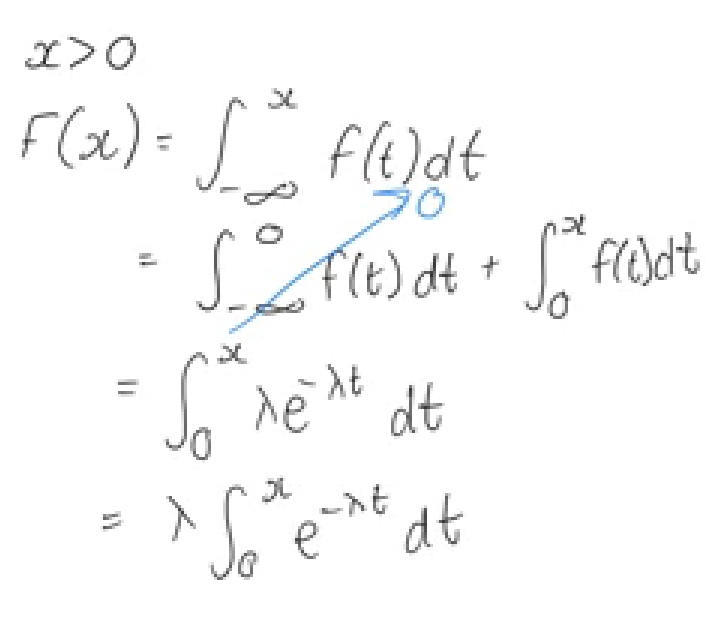 x>0
F(x) = ∫_{-∞}^{x} f(t)dt
= ∫_{-∞}^{0} f(t) dt + ∫_{0}^{x} f(t)dt
0
= ∫_{0}^{x} λe^{-λt} dt
= λ∫_{0}^{x} e^{-λt} dt